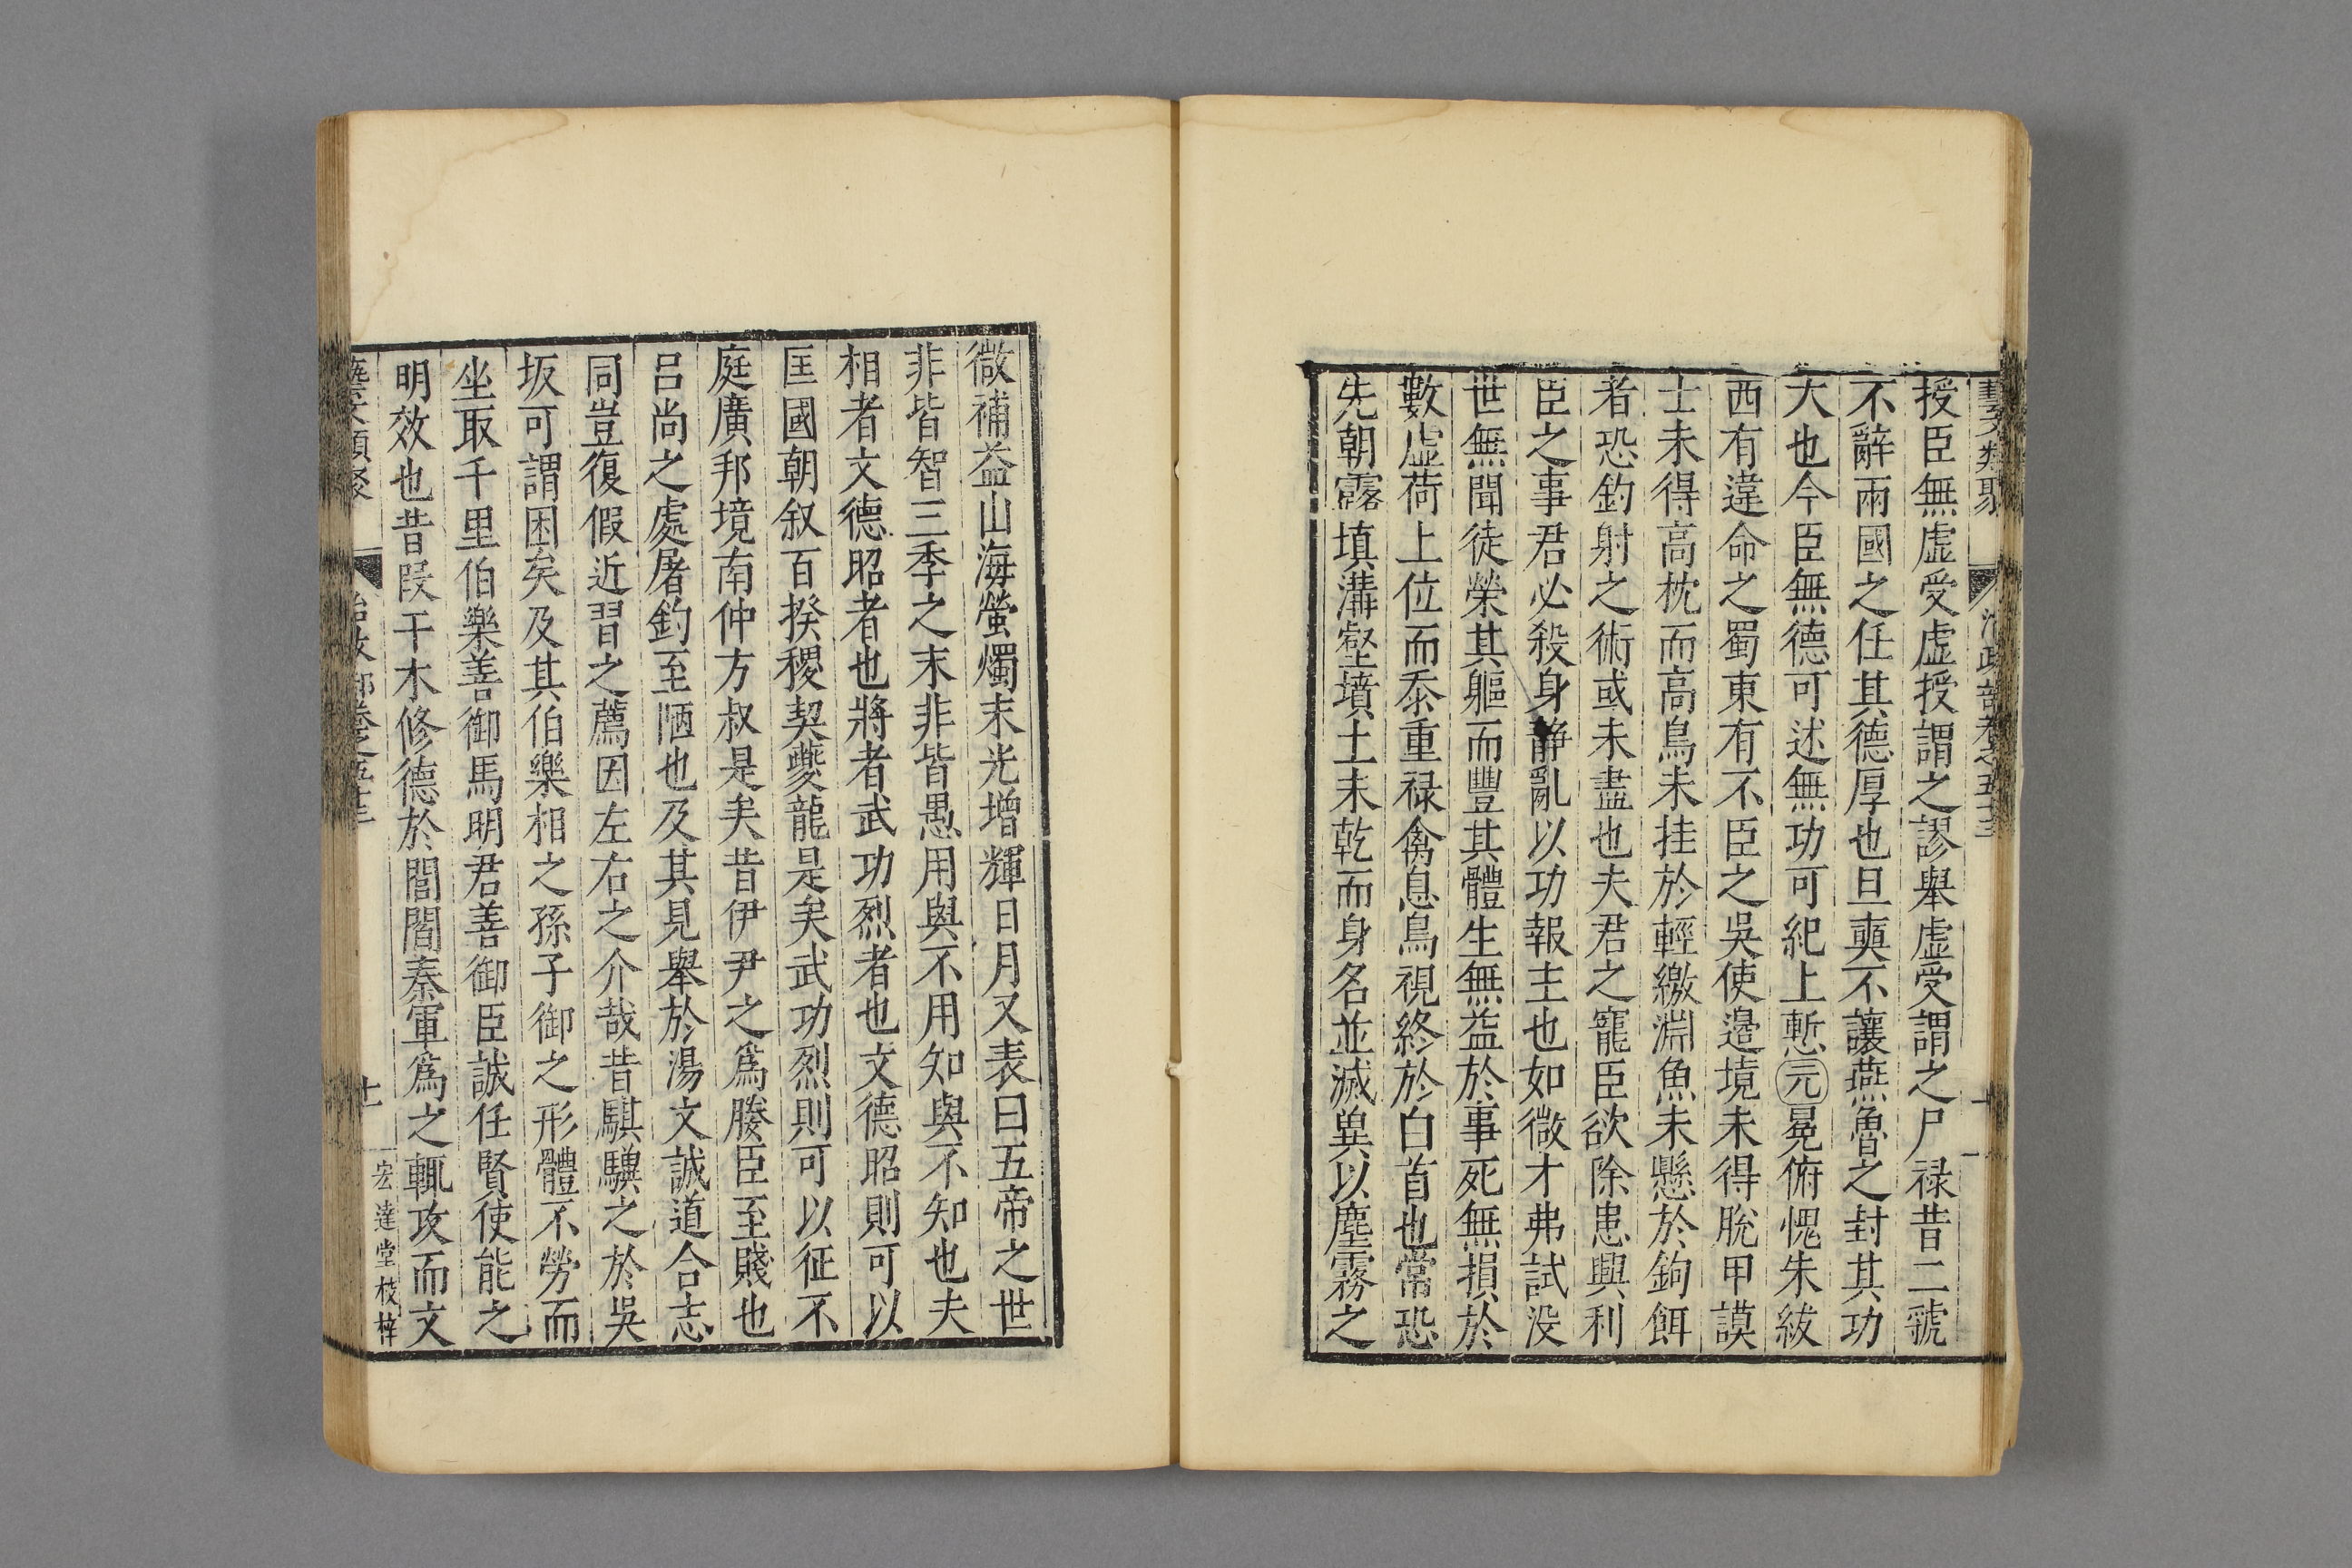 授臣無虛受虛授謂之謬舉虛受謂之尸禄昔二虢
不辭兩國之任其德厚也旦奭不讓燕魯之封其功
大也今臣無德可述無功可紀上慙元冕俯愧朱紱
西有違命之蜀東有不臣之吳使邊境未得脫甲謨
士未得高枕而高鳥未挂於輕繳淵魚未懸於鉤餌
者恐釣射之術或未盡也夫君之寵臣欲除患興利
臣之事君必殺身静亂以功報主也如微才弗試没
世無聞徒榮其軀而豐其體生無益於事死無損於
數虛荷上位而忝重禄禽息鳥視終於白首也常恐
先朝露填溝壑墳土未乾而身名並滅兾以塵霧之
微補益山海螢燭末光增輝日月又表曰五帝之世
非皆智三季之末非皆愚用與不用知與不知也夫
相者文德昭者也將者武功烈者也文德昭則可以
匡國朝叙百揆稷契夔龍是矣武功烈則可以征不
庭廣邦境南仲方叔是矣昔伊尹之爲媵臣至賤也
吕尚之處屠釣至陋也及其見舉於湯文誠道合志
同豈復假近習之薦因左右之介哉昔騏驥之於吳
坂可謂困矣及其伯樂相之孫子御之形體不勞而
坐取千里伯樂善御馬明君善御臣誠任賢使能之
明效也昔段干木修德於閭閻秦軍爲之輒攻而文
藝文類聚 治政部卷之五十三 十一 宏達堂校梓